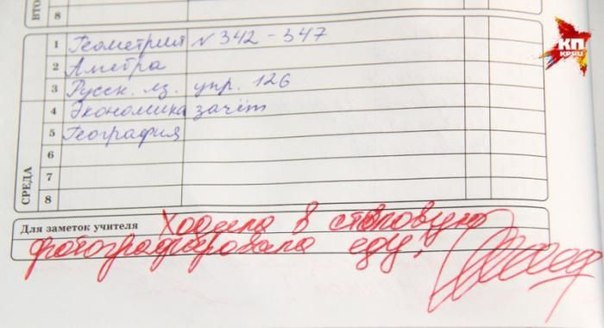 ВТО
8
1 Геометрия №342-347
2 Алгебра
3 Русск. яз. упр. 126
4 Экономика зачёт
5 География
6
7
8
СРЕДА
Для заметок учителя Ходила в столовую
фотографировала еду.
КП
KP.RU